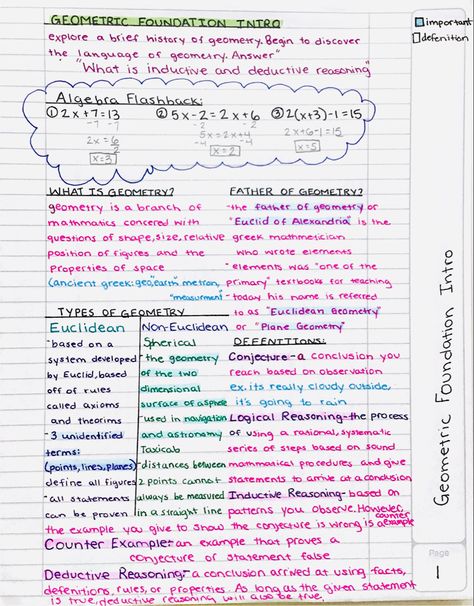 GEOMETRIC FOUNDATION INTRO
explore a brief history of geometry. Begin to discover
the language of geometry. Answer"
"What is inductive and deductive reasoning"
important
defenition
Algebra Flashback:
① 2x+7=13
-7 -7
2x=6
2
x=3
② 5x-2=2x+6
-2 -2
5x=2x+4
x=2
③ 2(x+3)-1=15
2x+6-1=15
x=5
WHAT IS GEOMETRY?
geometry is a branch of
mathmatics concered with
questions of shape, size, relative
position of figures and the
properties of space
(ancient greek: geo, earth" metron,
"measurment"
FATHER OF GEOMETRY?
-the father of geometry or
"Euclid of Alexandria" is the
greek mathmetician
who wrote elements
-elements was "one of the
primary" textbooks for teaching
-today his name is referred
to as "Euclidean Geometry"
or "Plane Geometry"
TYPES OF GEOMETRY
Euclidean
-based on a
system developed
by Euclid, based
off of rules
called axioms
and theorims
-3 unidentified
terms:
(points, lines, planes)
define all figures
-all statements
can be proven
Non-Euclidean
Spherical
-the geometry
of the two
dimensional
surface of a sphere
-used in navigation
and astronomy
Taxicab
-distances between
2 points cannot
always be measured
in a straight line
DEFENTIONS:
Conjecture-a conclusion you
reach based on observation
ex. its really cloudy outside,
it's going to rain
Logical Reasoning-the process
of using a rational, systematic
series of steps based on sound
mathmatical procedures and give
statements to arrive at a conclusion
Inductive Reasoning-based on
patterns you observe. However,
the example you give to show the conjecture is wrong is a counter example
Counter Example-an example that proves a
conjecture of statement false
Deductive Reasoning-a conclusion arrived at using facts,
defenitions, rules, or properties. As long as the given statement
is true, deductive reasoning will also be true.
Geometric Foundation Intro
Page
1